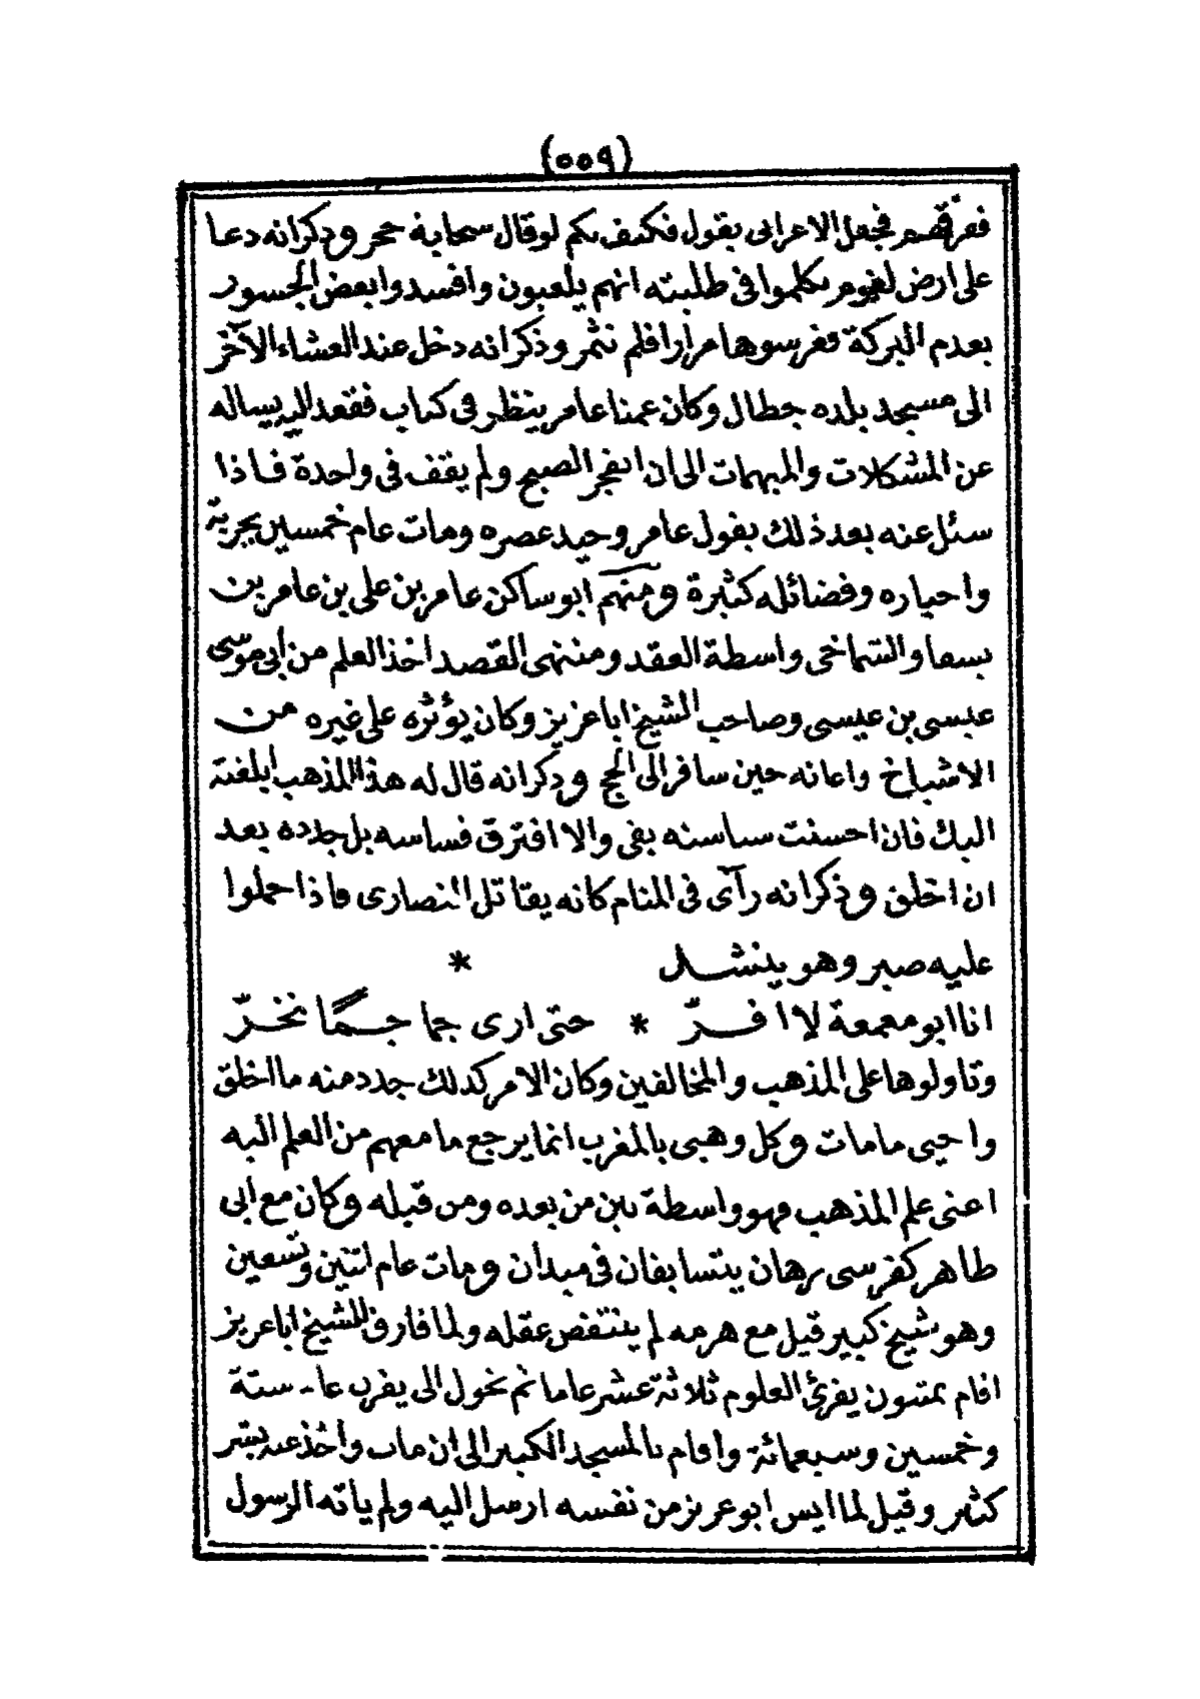 (٥٥٩)
ففرّقهم فجعل الاعرابى يقول فكيف بكم لو قال سحابة حجر وذكر انه دعا
على ارض لقوم تكلموا فى طلبته انهم يلعبون وافسدوا بعض الجسور
بعدم البركة فغرسوها مرارا فلم تثمر وذكر انه دخل عند العشاء الآخر
الى مسجد بلده جطال وكان عمنا عامر ينظر فى كتاب فقعد اليه يساله
عن المشكلات والمبهمات الى ان انفجر الصبح ولم يقف فى واحدة فاذا
سئل عنه بعد ذلك يقول عامر وحيد عصره ومات عام خمسين بجربة
واخباره وفضائله كثيرة ومنهم ابو ساكن عامر بن على بن عامر بن
يسفاو الشماخى واسطة العقد ومنتهى القصد اخذ العلم من أبى موسى
عيسى بن عيسى وصاحب الشيخ ابا عزيز وكان يؤثره على غيره من
الاشياخ واعانه حين سافر الى الحج وذكر انه قال له هذا المذهب ابلغته
اليك فان احسنت سياسته بقى والا افترق فساسه بل جدده بعد
ان اخلق وذكر انه رآى فى المنام كانه يقاتل النصارى فاذا حملوا
عليه صبر وهو ينشد *
انا ابو معمعة لا افرّ * حتى ارى جما جمًا تخرّ
وتاولوها على المذهب والمخالفين وكان الامر كذلك جدد منه ما اخلق
واحيى ما مات وكل وهبى بالمغرب انما يرجع ما معهم من العلم اليه
اعنى علم المذهب فهو واسطة بين من بعده ومن قبله وكان مع ابى
طاهر كفرسى رهان يتسابقان فى ميدان ومات عام اثنين وتسعين
وهو شيخ كبير قيل مع هرمه لم ينتقض عقله ولما فارق الشيخ ابا عزيز
اقام بمتيون يقرئ العلوم ثلاثة عشر عاما ثم تحول الى يفرن عام ستة
وخمسين وسبعمائة واقام بالمسجد الكبير الى ان مات وأخذ عنه بشر
كثير وقيل لما ايس ابو عزيز من نفسه ارسل اليه ولم ياته الرسول